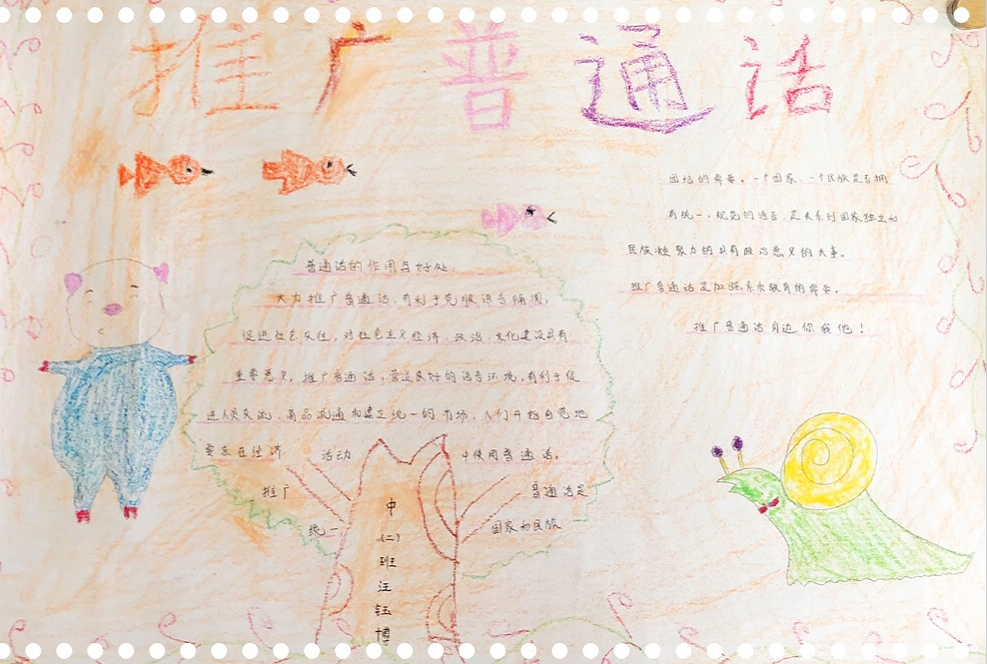 推广普通话
普通话的作用与好处
大力推广普通话,有利于克服语言隔阂,
促进社会交往,对社会主义经济、政治、文化建设具有
重要意义。推广普通话,营造良好的语言环境,有利于促
进人员交流、商品流通和建立统一的市场。人们开始自觉地
要求在经济 活动 中使用普通话。
推广 普通话是
统一 国家和民族
团结的需要。一个国家、一个民族是否拥
有统一、规范的语言,是关系到国家独立和
民族凝聚力的具有政治意义的大事。
推广普通话是加强素质教育的需要。
推广普通话身边你我他!
中
(二)
班
汪
钰
博